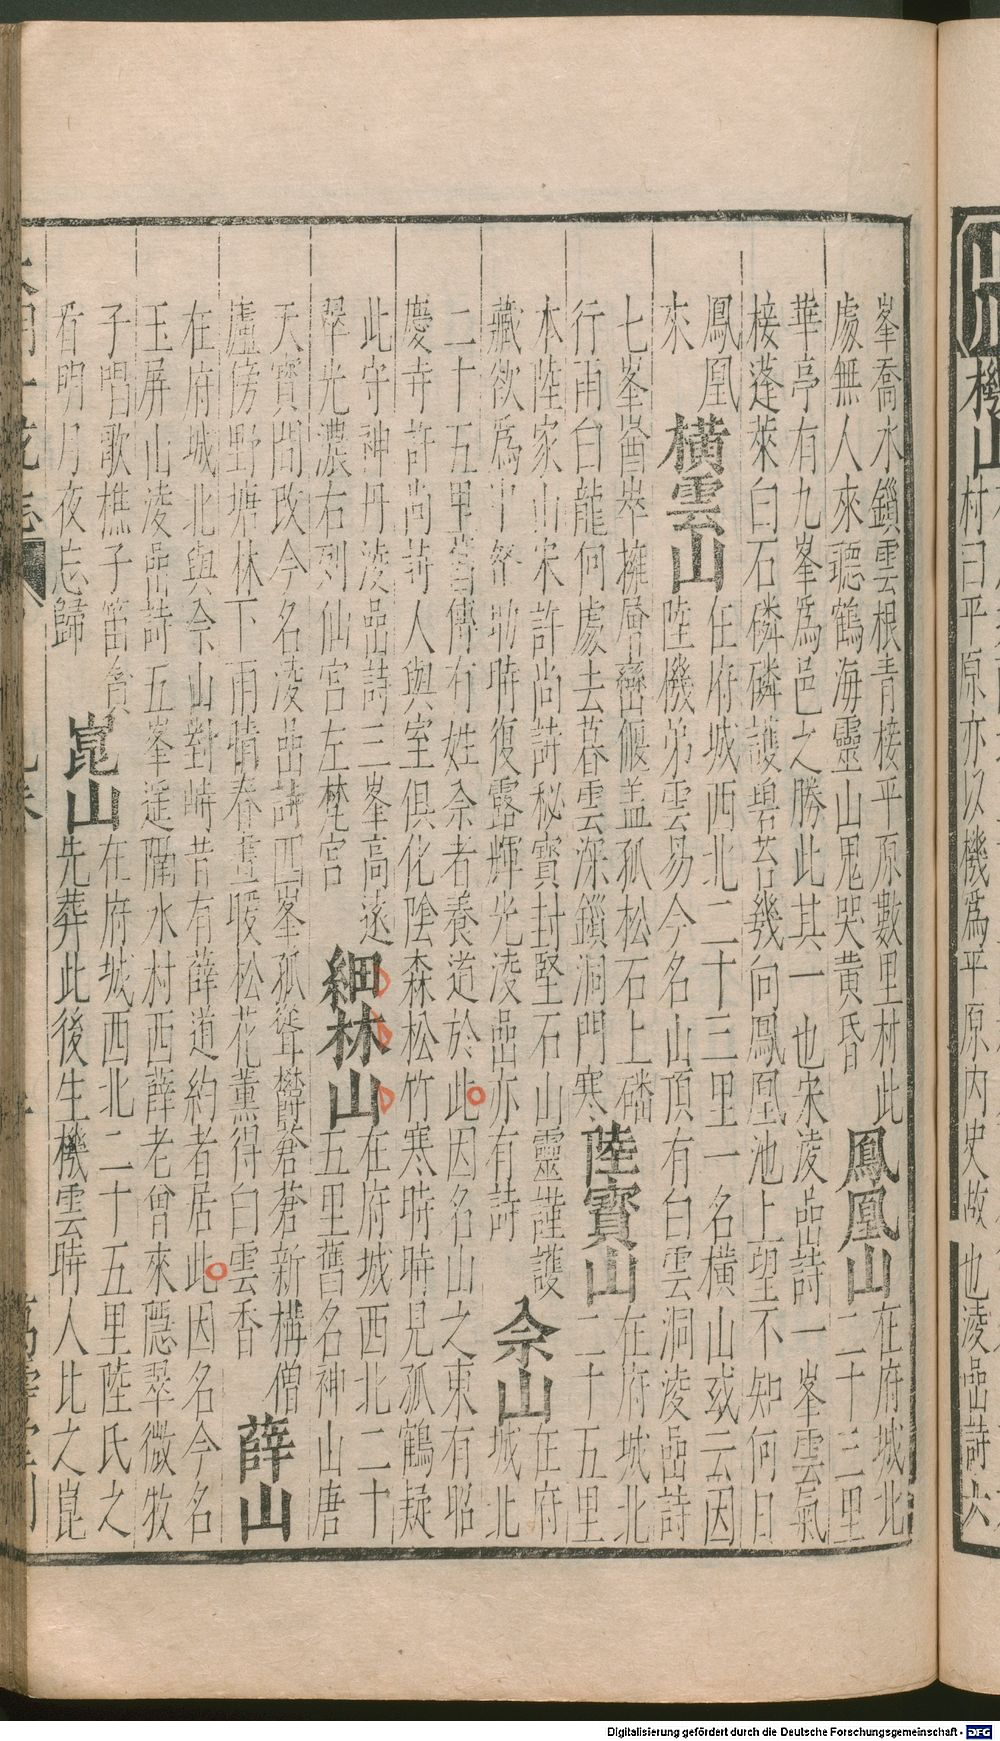 機山
村曰平原亦以機爲平原内史故
也凌嵒詩六
峯喬水鎻雲根青接平原數里村此
處無人來聽鶴海靈山鬼哭黄昏
鳳凰山
在府城北
二十三里
華亭有九峯爲邑之勝此其一也宋凌嵒詩一峯雲氣
接蓬萊白石磷磷護碧苔幾向鳳凰池上望不知何日
鳳凰
來
横雲山
在府城西北二十三里一名横山或云因
陸機弟雲易今名山頂有白雲洞凌嵒詩
七峯崷崒擁層巒偃盖孤松石上磻
行雨白龍何處去暮雲深鎻洞門寒
陸寳山
在府城北
二十五里
本陸家山宋許尚詩秘寳封堅石山靈謹護
藏欲爲 助時復露輝光凌嵒亦有詩
佘山
在府
城北
二十五里舊傳有姓佘者養道於此因名山之東有昭
慶寺許尚詩人與室俱化陰森松竹寒時時見孤鶴疑
此守神丹凌嵒詩三峯高遠
翠光濃右列仙宮左梵宮
細林山
在府城西北二十
五里舊名神山唐
天寳間改今名凌嵒詩四峯孤聳欝蒼蒼新構僧
廬傍野塘林下雨晴春晝暖松花薫得白雲香
薛山
在府城北與佘山對峙昔有薛道約者居此因名今名
玉屏山凌嵒詩五峯遥隔水村西薛老曾來隱翠微牧
子唱歌樵子笛貪
看明月夜忘歸
崑山
在府城西北二十五里陸氏之
先葬此後生機雲時人比之崑
Digitalisierung gefördert durch die Deutsche Forschungsgemeinschaft - DFG